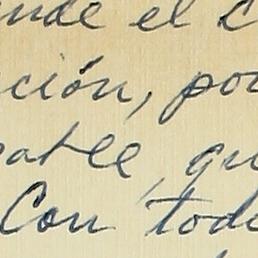 nde el c
ción, po
able, qu
Con tod